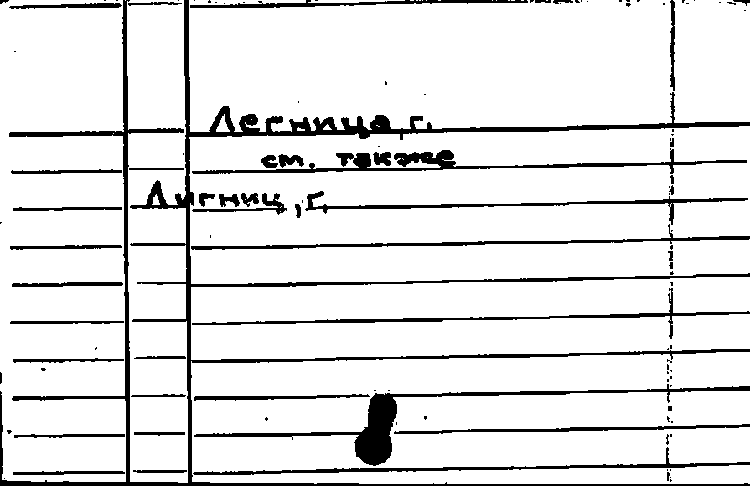 Легница, г.
см. также
Лигниц, г.